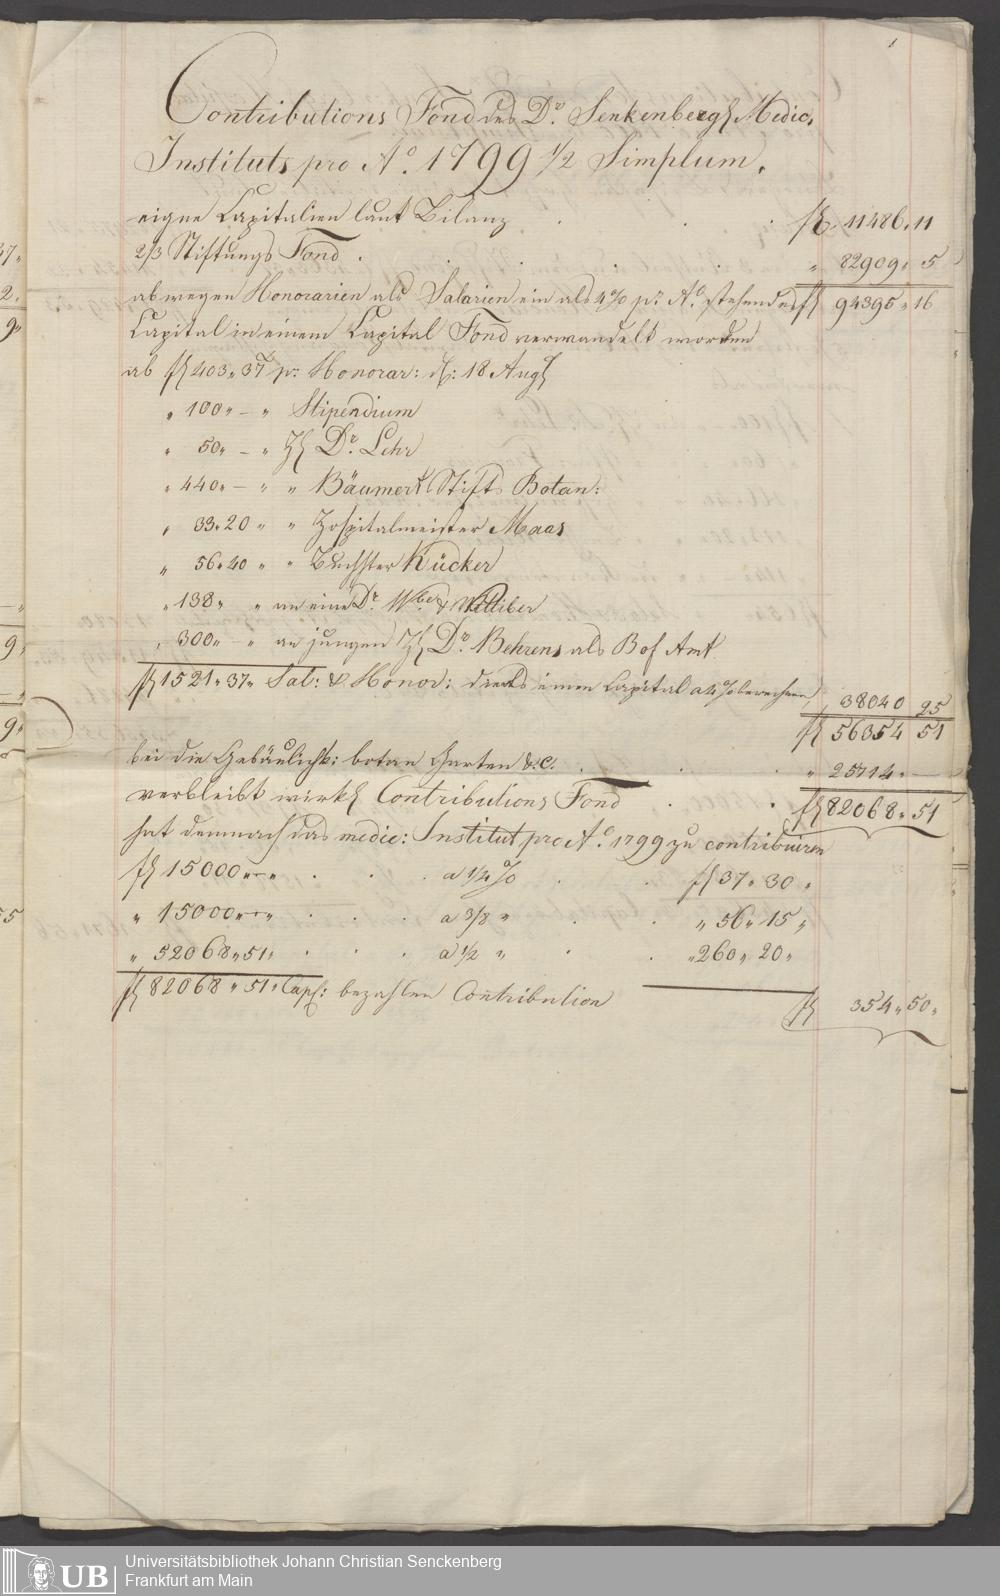 1
Contributions Fond des Dr. Senkenbergl Medic.
Instituts pro Ao. 1799 1/2 Simplum.
eigne Capitalien laut Bilanz . . . fl 11486,, 11
2/3 Stiftungs Fond . . . . „ 82909,, 5
ab wegen Honorarien als Salarien ein als 4% pr Ao. stehendes fl 94395,, 16
Capital in einem Capital Fond verwandelt worden
ab fl 403,, 37 pr Honorar: d: 18 Augl
„ 100,, — „ Stipendium
„ 50,, — „ H Dr. Lehr
„ 440,, — „ „ Bäumerl Stifts Botan:
„ 33,, 20 „ „ Hospitalmeister Maas
„ 56,, 40 „ „ Buchhlter Kücker
„ 138,, „ an eine Dr.
„ 300,, — „ an jungen H Dr. Behrens als Amt
fl 1521,, 37,, Sal: & Honor: einen Capital a 4% berechnen, 38040 25
fl 56354 51
bei die Gebäulichk: botan Garten &.c. . . . „ 25714,, —
verbleibt wirkl Contributions Fond . . fl 82068,, 51
hat demnach das medic: Institut pro Ao. 1799 zu contribuiren
fl 15000,,—,, . . . a 1/4 % . . fl 37,, 30 „
„ 15000,,—,, . . . a 3/8 „ . . „ 56,, 15 „
„ 52068,, 51,, . . . a 1/2 „ . . „ 260,, 20,,
fl 82068,, 51,, Capl: bezahlen Contribution fl 354,, 50,,
UB
Universitätsbibliothek Johann Christian Senckenberg
Frankfurt am Main